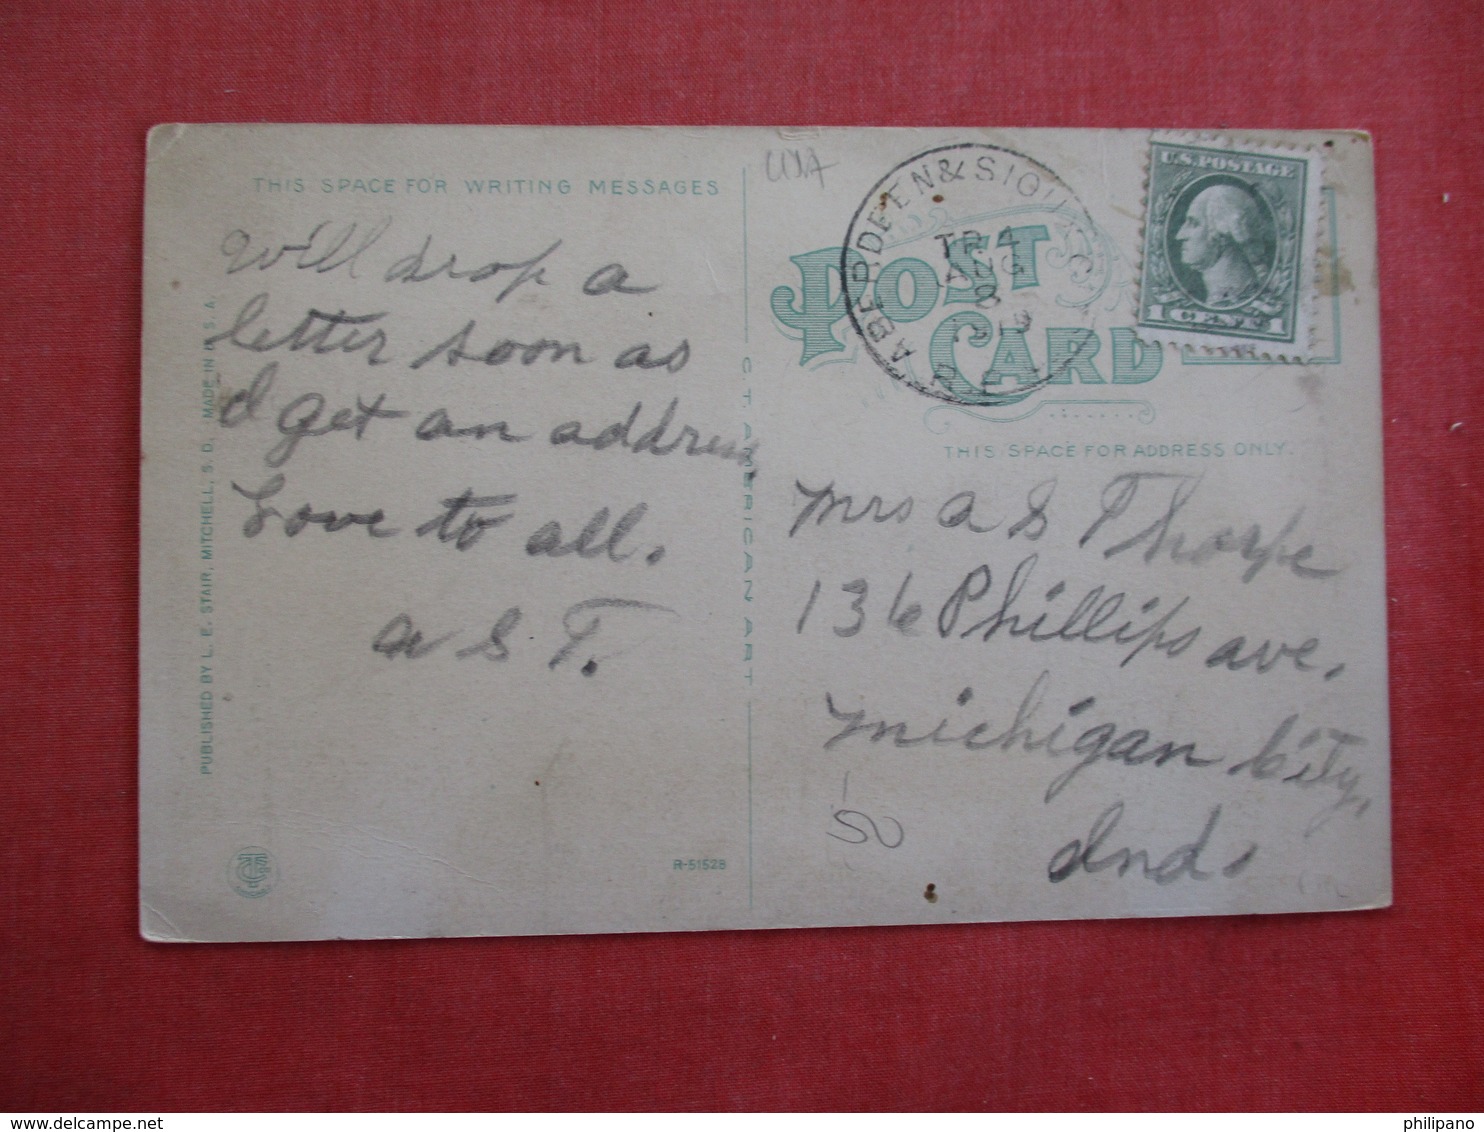 THIS SPACE FOR WRITING MESSAGES
Will drop a
letter soon as
I get an address.
Love to all.
a S T.
PUBLISHED BY L. E. STAIR, MITCHELL, S. D. MADE IN U. S. A.
C. T. AMERICAN ART
R-51528
USA
POST CARD
ABERDEEN & SIOUX C
TR 4
AUG
8
1919
R.P.
U.S. POSTAGE
1 CENT 1
THIS SPACE FOR ADDRESS ONLY.
Mrs a S Thorpe
136 Phillips ave.
Michigan City,
Ind.
150
See more on my website: delcampe.net
philipano